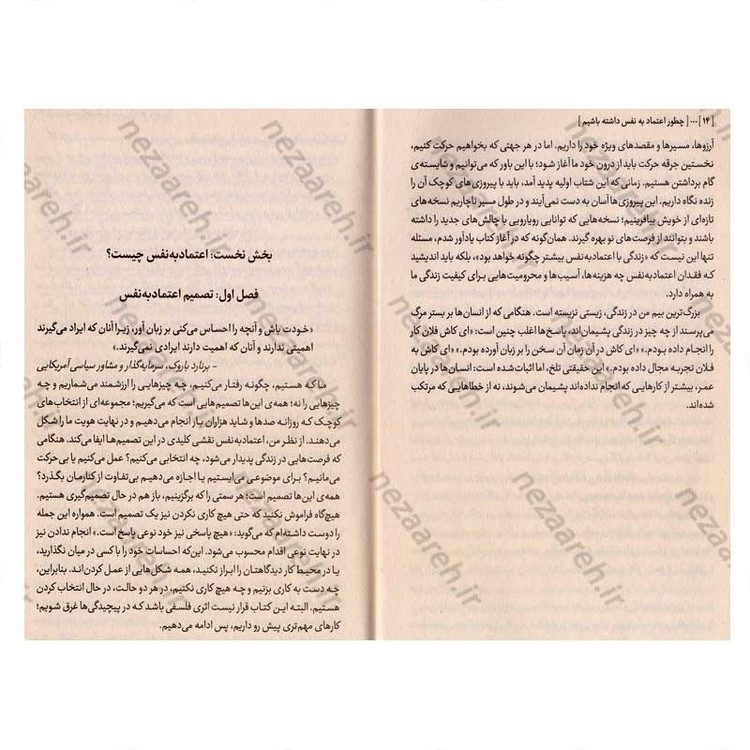 [ ۱۴ ] ... [ چطور اعتماد به نفس داشته باشیم ]
آرزوها، مسیرها و مقصدهای ویژه خود را داریم. اما در هر جهتی که بخواهیم حرکت کنیم،
نخستین جرقه حرکت باید از درون خود ما آغاز شود؛ با این باور که می‌توانیم و شایسته‌ی
گام برداشتن هستیم. زمانی که این شتاب اولیه پدید آمد، باید با پیروزی‌های کوچک آن را
زنده نگاه داریم. این پیروزی‌ها آسان به دست نمی‌آیند و در طول مسیر ناچاریم نسخه‌های
تازه‌ای از خویش بیافرینیم؛ نسخه‌هایی که توانایی رویارویی با چالش‌های جدید را داشته
باشند و بتوانند از فرصت‌های نو بهره گیرند. همان‌گونه که در آغاز کتاب یادآور شدم، مسئله
تنها این نیست که «زندگی با اعتمادبه‌نفس بیشتر چگونه خواهد بود»، بلکه باید اندیشید
که فقدان اعتمادبه‌نفس چه هزینه‌ها، آسیب‌ها و محرومیت‌هایی برای کیفیت زندگی ما
به همراه دارد.
بزرگ‌ترین بیم من در زندگی، زیستی نزیسته است. هنگامی که از انسان‌ها بر بستر مرگ
می‌پرسند از چه چیز در زندگی پشیمان‌اند، پاسخ‌ها اغلب چنین است: «ای کاش فلان کار
را انجام داده بودم.» «ای کاش در آن زمان آن سخن را بر زبان آورده بودم.» «ای کاش به
فلان تجربه مجال داده بودم.» این حقیقتی تلخ، اما اثبات‌شده است: انسان‌ها در پایان
عمر، بیشتر از کارهایی که انجام نداده‌اند پشیمان می‌شوند، نه از خطاهایی که مرتکب
شده‌اند.
بخش نخست: اعتمادبه‌نفس چیست؟
فصل اول: تصمیم اعتمادبه‌نفس
«خودت باش و آنچه را احساس می‌کنی بر زبان آور، زیرا آنان که ایراد می‌گیرند
اهمیتی ندارند و آنان که اهمیت دارند ایرادی نمی‌گیرند.»
- برنارد باروک، سرمایه‌گذار و مشاور سیاسی آمریکایی
ما که هستیم، چگونه رفتار می‌کنیم، چه چیزهایی را ارزشمند می‌شماریم و چه
چیزهایی را نه؛ همه‌ی این‌ها تصمیم هایی است که می‌گیریم؛ مجموعه‌ای از انتخاب‌های
کوچک که روزانه صدها و شاید هزاران بار انجام می‌دهیم و در نهایت هویت ما را شکل
می‌دهند. از نظر من، اعتمادبه‌نفس نقشی کلیدی در این تصمیم‌ها ایفا می‌کند. هنگامی
که فرصت‌هایی در زندگی پدیدار می‌شود، چه انتخابی می‌کنیم؟ عمل می‌کنیم یا بی‌حرکت
می‌مانیم؟ برای موضوعی می‌ایستیم یا اجازه می‌دهیم بی‌تفاوت از کنارمان بگذرد؟
همه‌ی این‌ها تصمیم است؛ هر سمتی را که برگزینیم، باز هم در حال تصمیم‌گیری هستیم.
هیچ‌گاه فراموش نکنید که حتی هیچ کاری نکردن نیز یک تصمیم است. همواره این جمله
را دوست داشته‌ام که می‌گوید: «هیچ پاسخی نیز خود نوعی پاسخ است.» انجام ندادن نیز
در نهایت نوعی اقدام محسوب می‌شود. این‌که احساسات خود را با کسی در میان نگذارید،
یا در محیط کار دیدگاهتان را ابراز نکنید، همه شکل‌هایی از عمل کردن‌اند. بنابراین،
چه دست به کاری بزنیم و چه هیچ کاری نکنیم، در هر دو حالت، در حال انتخاب کردن
هستیم. البته این کتاب قرار نیست اثری فلسفی باشد که در پیچیدگی‌ها غرق شویم؛
کارهای مهم‌تری پیش رو داریم، پس ادامه می‌دهیم.
nezaareh.ir
nezaareh.ir
nezaareh.ir
nezaareh.ir
nezaareh.ir
nezaareh.ir
nezaareh.ir
nezaareh.ir